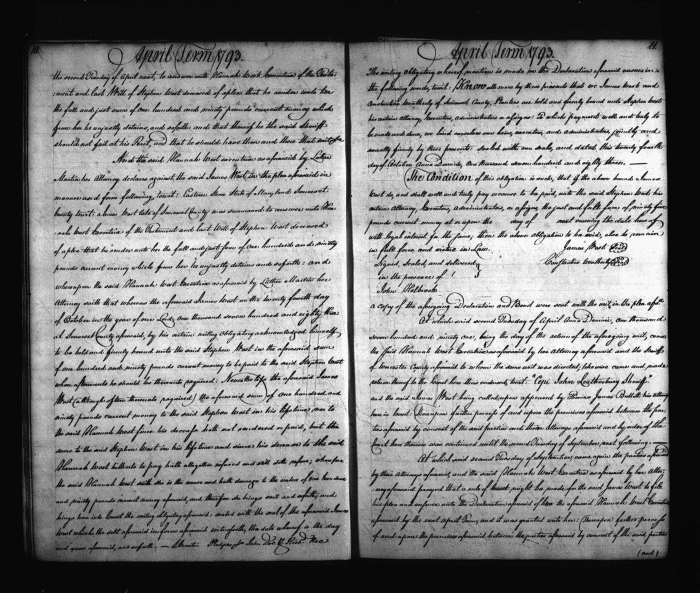 10.
April Term 1793.
the second Tuesday of April next, to answer unto Hannah West Executrix of the Testa-
ment and last Will of Stephen West deceased of a plea that he render unto her
the full and just sum of one hundred and ninety pounds current money which
from her he unjustly detains, and so forth and thereof he the said Sheriff
should not fail at his Peril, and that he should have there and then that writ
And the said Hannah West executrix as aforesaid by Luther
Martin her Attorney declares against the said James West, in the plea aforesaid in
manner and form following, towit: Eastern Shore State of Maryland Somerset
County towit: James West late of Somerset County was summoned to answer unto Han-
nah West Executrix of the Testament and last Will of Stephen West deceased
of a plea that he render unto her the full and just sum of one hundred and ninety
pounds current money which from her he unjustly detains and so forth: and
whereupon the said Hannah West Executrix as aforesaid by Luther Martin her
Attorney saith that whereas the aforesaid James West on the twenty fourth day
of October in the year of our Lord one thousand seven hundred and eighty three
at Somerset County aforesaid, by his certain writing Obligatory acknowledged himself
to be held and firmly bound unto the said Stephen West in the aforesaid sum
of one hundred and ninety pounds current money to be paid to the said Stephen West
when afterwards he should be thereunto required. Nevertheless the aforesaid James
West (although often thereunto required) the aforesaid sum of one hundred and
ninety pounds current money to the said Stephen West in his lifetime nor to
the said Hannah West since his decease hath not rendered or paid, but the
same to the said Stephen West in his lifetime and since his decease to the said
Hannah West hitherto to pay hath altogether refused and still doth refuse, whereupon
the said Hannah West saith she is the worse and hath damage to the value of one hundred
and ninety pounds current money aforesaid, and therefore she brings suit and so forth, and
brings here into Court the writing obligatory aforesaid: sealed with the seal of the aforesaid James
West which the debt aforesaid in form aforesaid witnesseth, the date whereof is the day
and year aforesaid, and so forth. Pledges John Doe & Richd Roe
11.
April Term 1793.
The writing Obligatory whereof mention is made in the Declaration aforesaid ensues in
the following words, towit: Know all men by these presents that we James West and
Constantine of Somerset County, Planters are held and firmly bound unto Stephen West
his certain attorney, Executors, administrators or assigns: To which payment well and truly to
be made and done, we bind ourselves our heirs, executors, and administrators, jointly and
severally firmly by these presents: sealed with our seals, and dated this twenty fourth
day of October Anno Domini, one thousand seven hundred and eighty three.
The Condition of this obligation is such, that if the above bound James
West do, and shall well and truly pay or cause to be paid, unto the said Stephen West his
certain attorney, Executors, Administrators, or assigns the just and full sum of ninety five
pounds current money at or upon the day of next ensuing the date hereof
with legal interest for the same, then the above obligation to be void, else to remain
in full force and virtue in Law. James West
Signed, Sealed and delivered
in the presence of
John Holbrook
a copy of the aforegoing Declaration and Bond was sent with the writ, in the plea afsd.
At which said second Tuesday of April Anno Domini, one thousand
seven hundred and ninety one, being the day of the return of the aforegoing writ, comes
the said Hannah West Executrix as aforesaid by her attorney aforesaid and the Sheriff
of Worcester County aforesaid to whom the same writ was directed likewise comes and makes
return thereof to the Court here thus endorsed, towit: "Cepi John Sheriff."
and the said James West being called appears aforesaid by James Bullitt his attorney
here in Court. Whereupon further process of and upon the premises aforesaid between the par-
ties aforesaid by consent of the said parties and their Attornies aforesaid and by order of the
Court here thereon were continued until the second Tuesday of September, next following.
At which said second Tuesday of September, came again the parties afsd
by their attornies aforesaid and the said Hannah West Executrix as aforesaid by her attor-
ney aforesaid prayed that a rule of Court might be made for the said James West to file
his plea and answer unto the Declaration aforesaid of her the aforesaid Hannah West Executrix
aforesaid by the next April Term; and it was granted unto her: thereupon further process
of and upon the premises aforesaid between the parties aforesaid by consent of the said parties
(and)